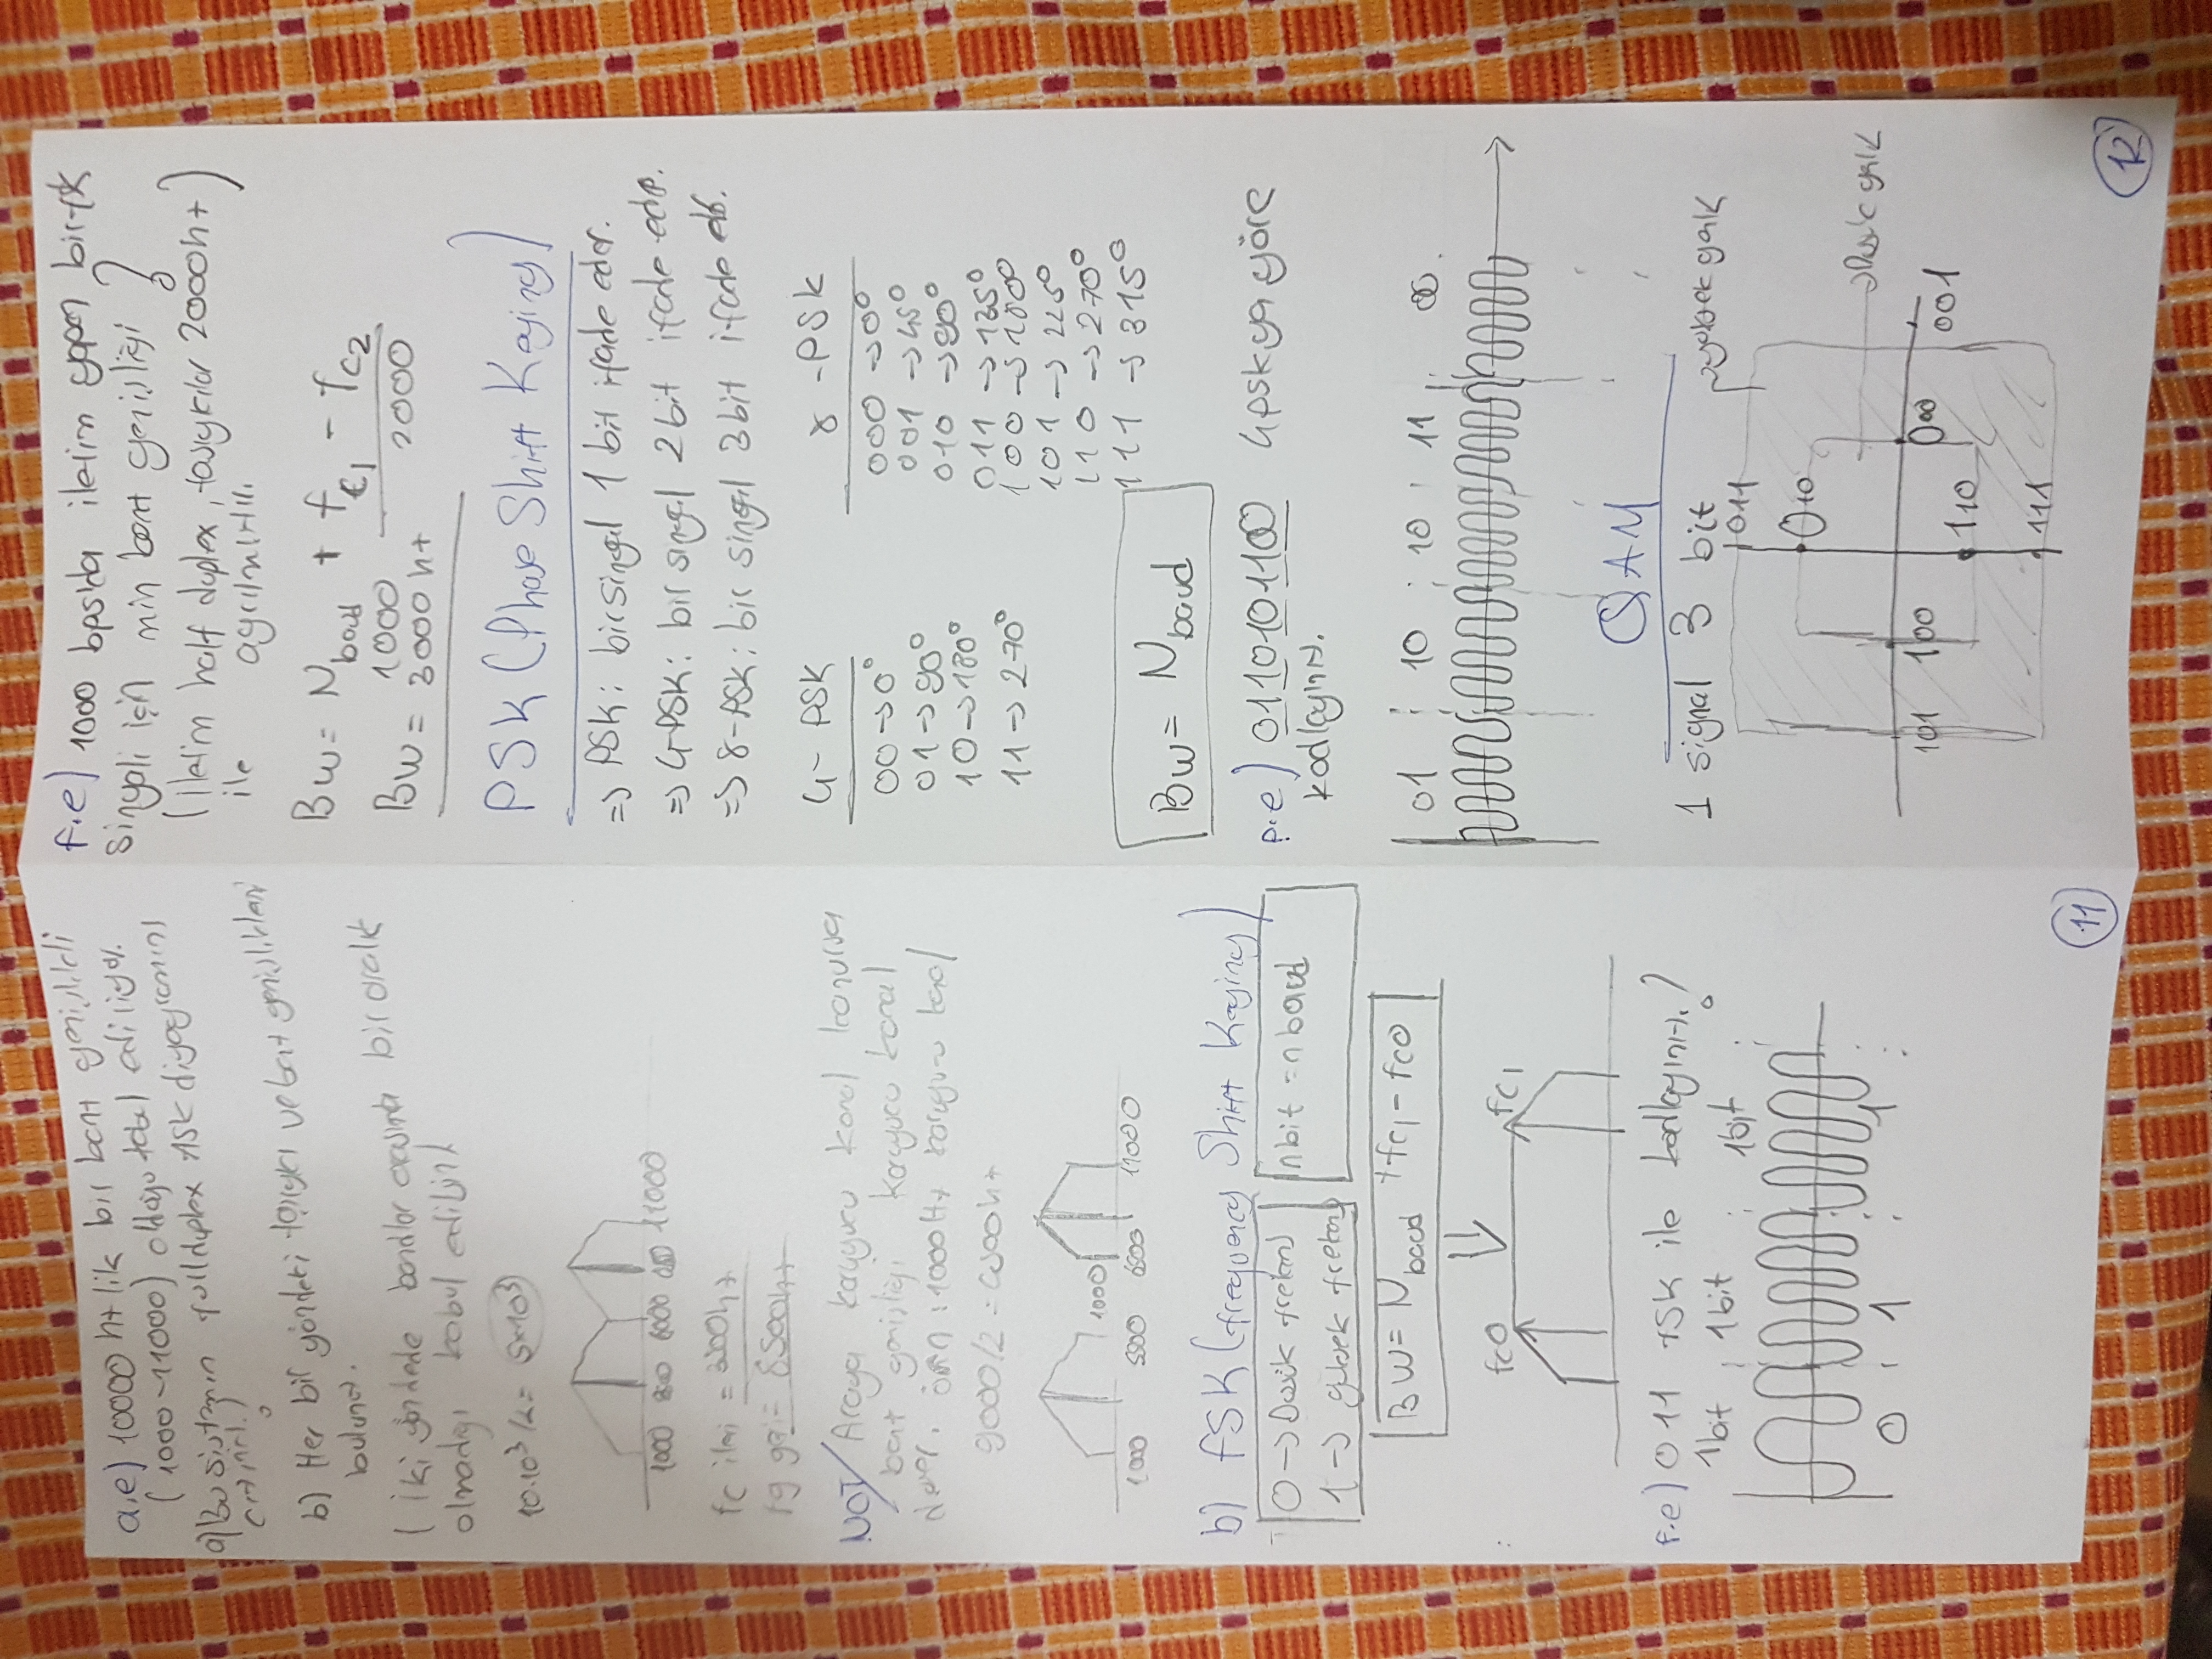 a.e) 10000 htlik bir bant genişlikli
(1000-11000) olduğu kabul ediliyor.
a) Bu sistemin fullduplex ASK diyagramını
çiziniz.?
b) Her bir yöndeki taşıyıcı ve bant genişlikleri
bulunuz.
( iki yöndede bandlar arasında bir aralık
olmadığı kabul edilsin)
10.10³/2 = 5x10³
1000 6000 11000
fc ileri = 3500ht
fg geri = 8500ht
NOT/ Araya koruyucu kanal konursa
bant genişliği koruyucu kanal
örn : 1000Ht koruyucu kanal
9000/2 = 4500ht
1000
1000 5500 6500 11000
b) FSK (frequency Shift Keying)
0 -> Düşük frekans
1 -> yüksek frekans
nbit = nbaud
BW = Nbaud + fc1 - fc0
fc0 fc1
f.e) 011 FSK ile kodlayınız.?
1bit 1bit 1bit
0 1 1
11
f.e) 1000 bps'da iletim yapan bir fsk
sinyali için min bant genişliği ?
(iletim half duplex, taşıyıcılar 2000ht)
ile ayrılmıştır.
Bw = Nbaud + fc1 - fc2
1000 2000
Bw = 3000 ht
PSK (Phase Shift Keying)
=> PSK: bir sinyal 1 bit ifade eder.
=> 4-PSK: bir sinyal 2 bit ifade eder.
=> 8-PSK: bir sinyal 3 bit ifade eder.
4- PSK
00 -> 0°
01 -> 90°
10 -> 180°
11 -> 270°
8 -PSK
000 -> 0°
001 -> 45°
010 -> 90°
011 -> 135°
100 -> 180°
101 -> 225°
110 -> 270°
111 -> 315°
Bw = Nbaud
p.e) 0110101100 4pskya göre
kodlayınız.
01 10 10 11 00
QAM
1 signal 3 bit
->yüksek genlik
011
010
->Düşük genlik
101 100 000 001
110
111
12